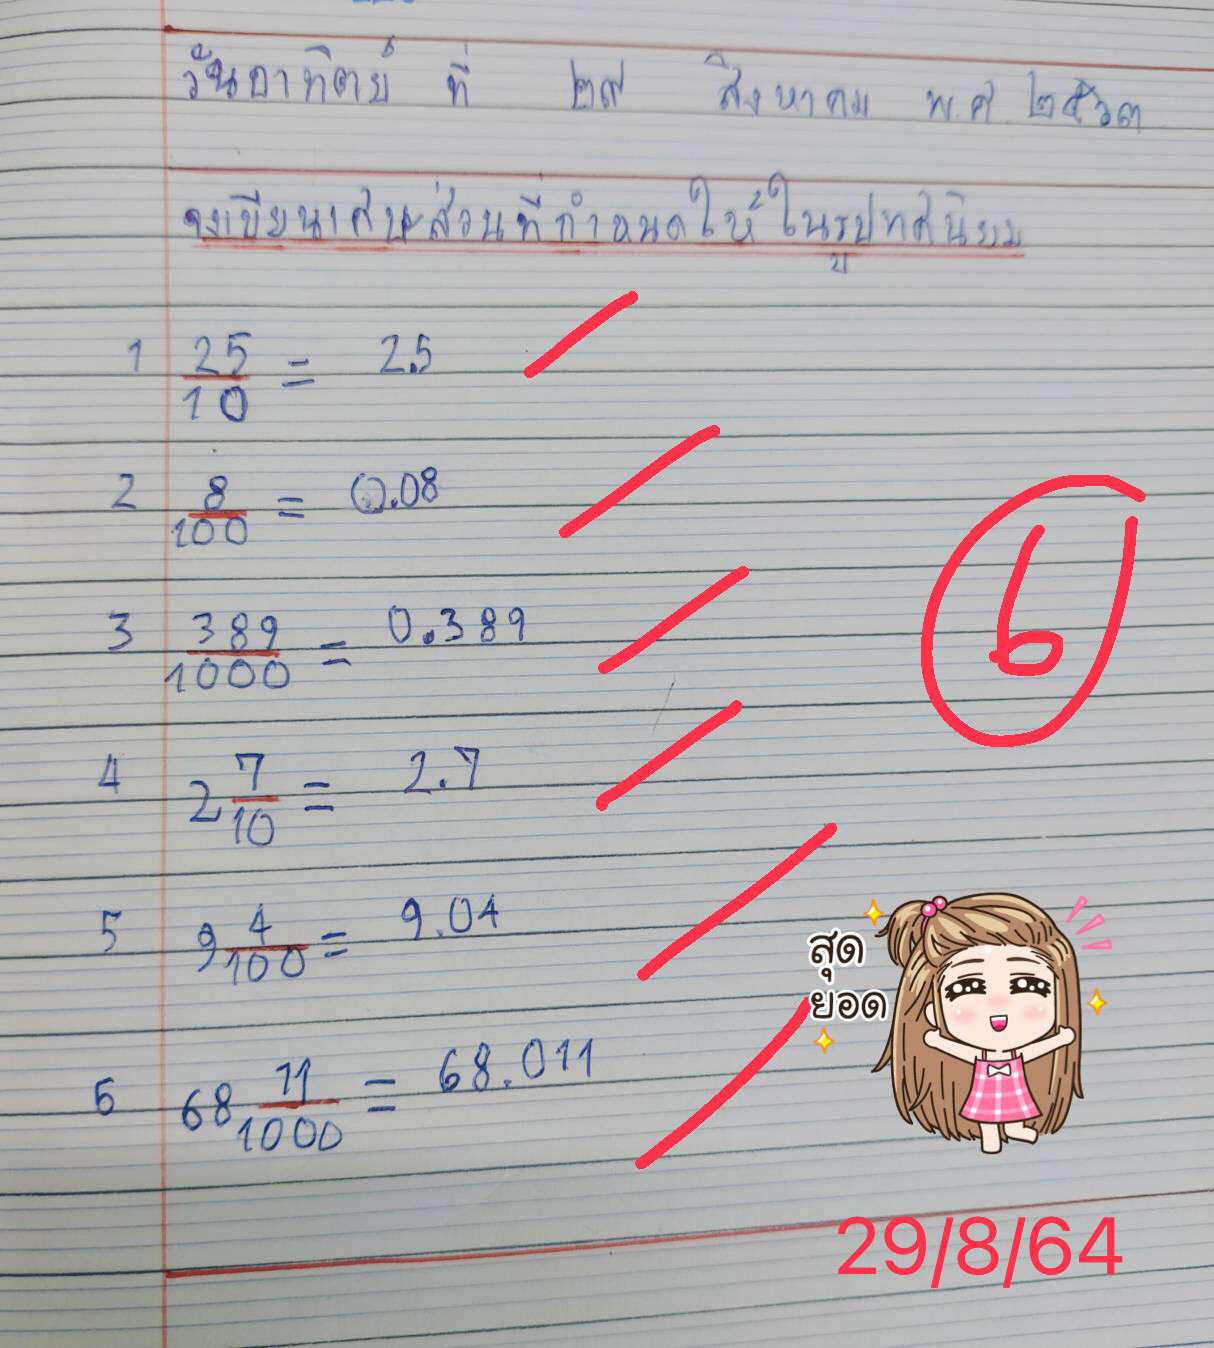 วันอาทิตย์ ที่ ๒๙ สิงหาคม พ.ศ ๒๕๖๓
จงเขียนเศษส่วนที่กำหนดให้ในรูปทศนิยม
1 25/10 = 2.5
2 8/100 = 0.08
3 389/1000 = 0.389
4 2 7/10 = 2.7
5 9 4/100 = 9.04
6 68 11/1000 = 68.011
6
สุด
ยอด
29/8/64